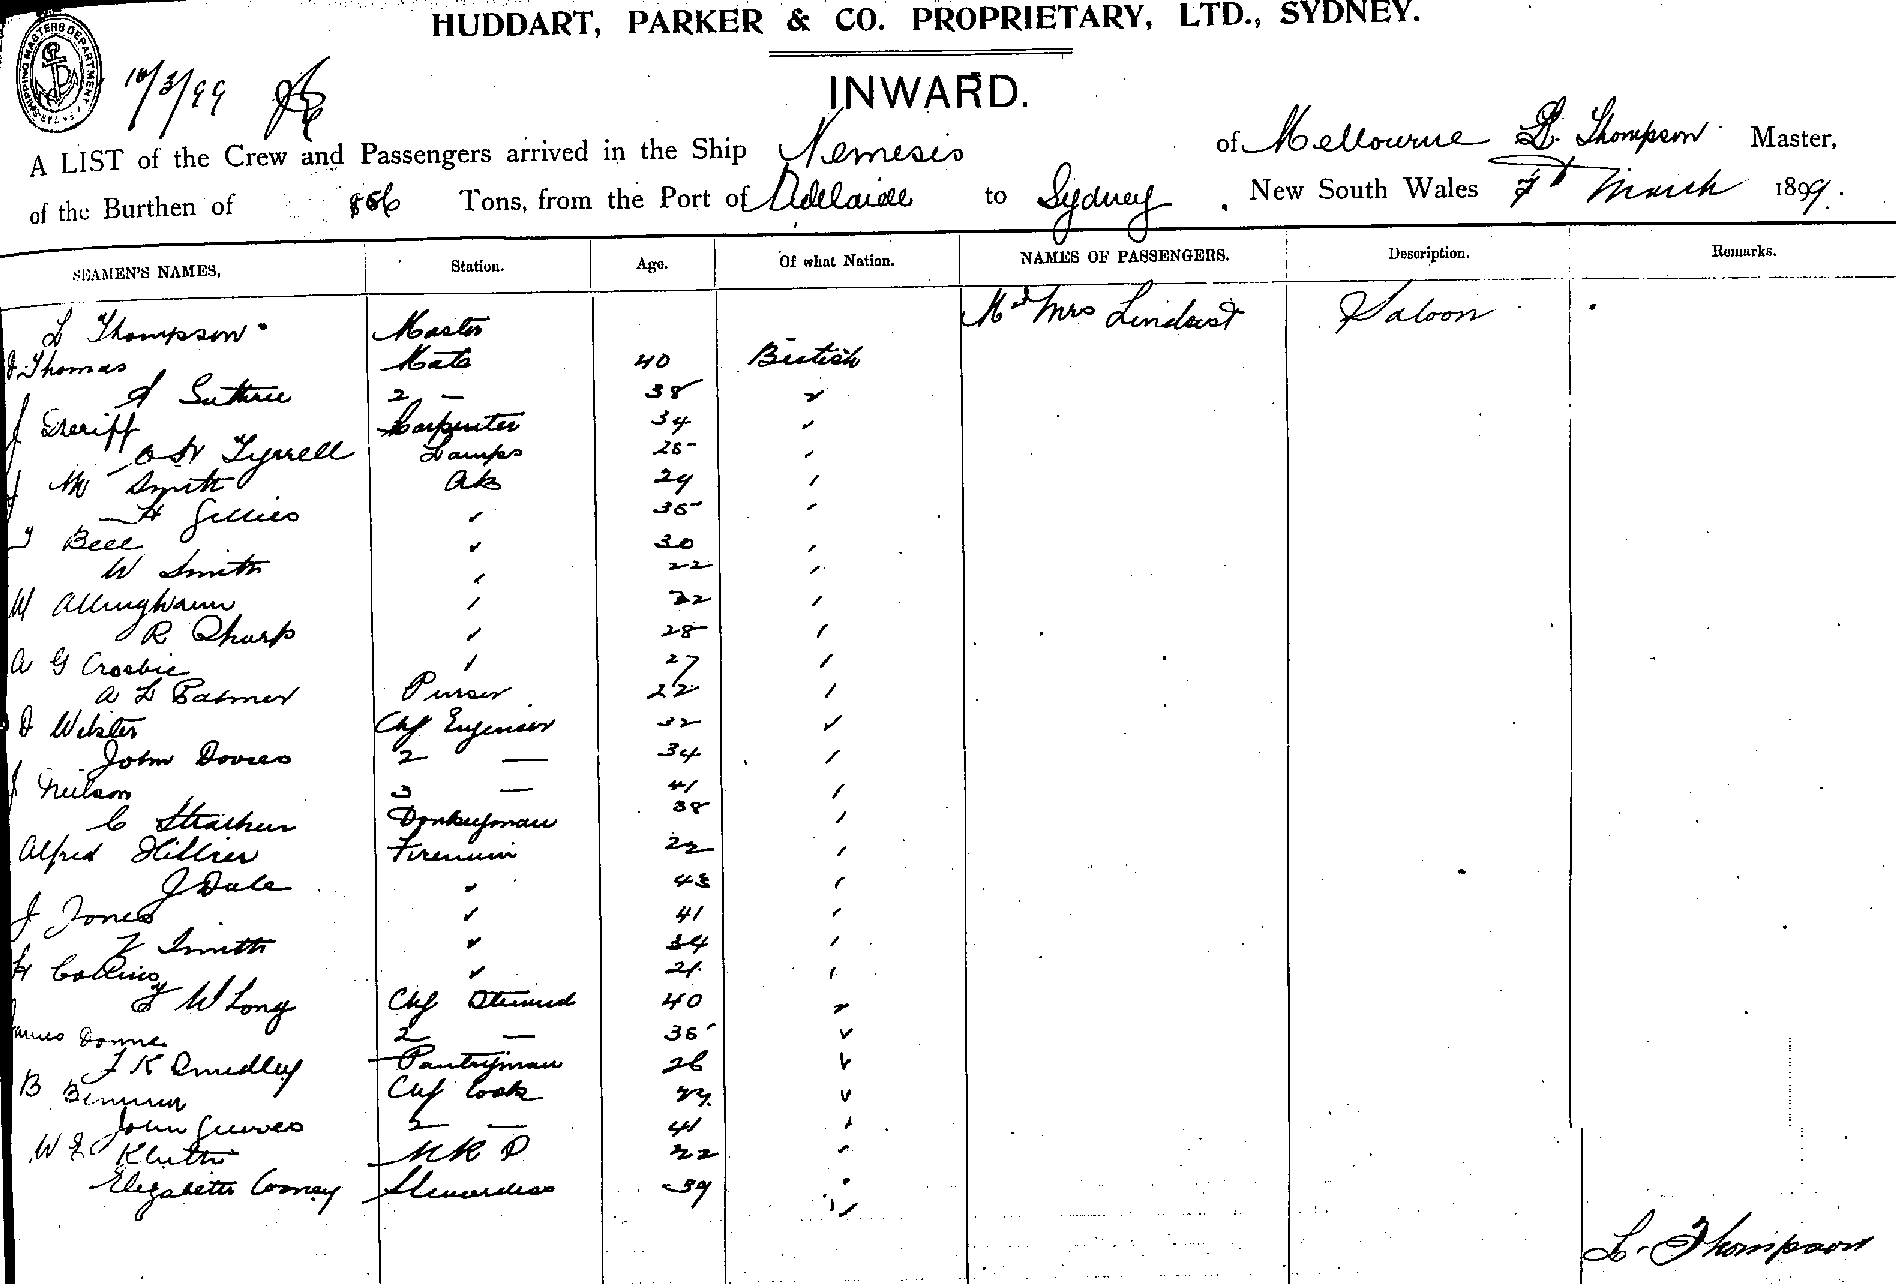 HUDDART, PARKER & CO. PROPRIETARY, LTD., SYDNEY.
INWARD.
A LIST of the Crew and Passengers arrived in the Ship Nemesis of Melbourne L. Thompson Master,
of the Burthen of 856 Tons, from the Port of Adelaide to Sydney, New South Wales 7th March 1899.
SEAMEN'S NAMES, Station. Age. Of what Nation. NAMES OF PASSENGERS. Description. Remarks.
L Thompson Master Mr & Mrs Saloon
Thomas Mate 40 British
A Guthrie 2 — 38 ✓
J Sheriff Carpenter 34 ✓
Tyrrell Lamps 25
J M Smith AB 29
H Gillies ✓ 35
T Bell ✓ 30
W Smith 22
W Allingham 22
R Sharp ✓ 28
A G Crosbie 27
A L Palmer Purser 22
D Webster Chf Engineer 32 ✓
John Davies 2 — 34
J Neilson 3 — 41
C Strachan Donkeyman 38
Alfred Hillier Fireman 22
J Dale ✓ 43
J Jones ✓ 41
Smith ✓ 34
H Collins ✓ 21
F W Long Chf Steward 40 ✓
James 2 — 35 ✓
F K Smedley Pantryman 26 ✓
B Chf Cook ✓
John 2 — 41
W 22
Elizabeth Cooney Stewardess 39
L. Thompson